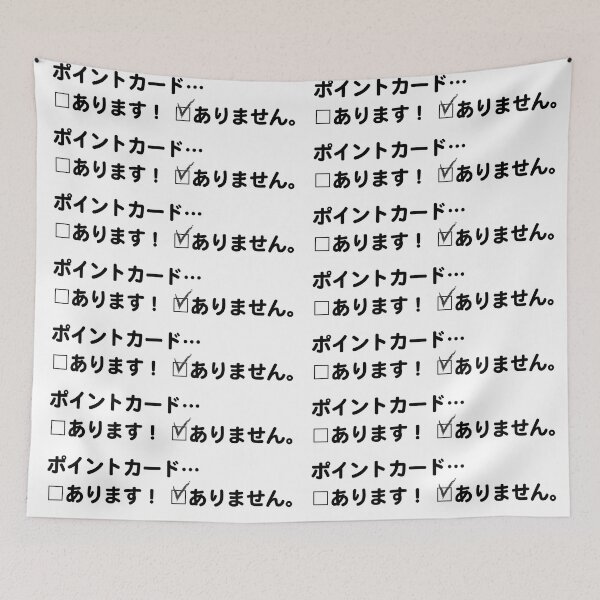 ポイントカード…
□あります！ ☑ありません。
ポイントカード…
□あります！ ☑ありません。
ポイントカード…
□あります！ ☑ありません。
ポイントカード…
□あります！ ☑ありません。
ポイントカード…
□あります！ ☑ありません。
ポイントカード…
□あります！ ☑ありません。
ポイントカード…
□あります！ ☑ありません。
ポイントカード…
□あります！ ☑ありません。
ポイントカード…
□あります！ ☑ありません。
ポイントカード…
□あります！ ☑ありません。
ポイントカード…
□あります！ ☑ありません。
ポイントカード…
□あります！ ☑ありません。
ポイントカード…
□あります！ ☑ありません。
ポイントカード…
□あります！ ☑ありません。